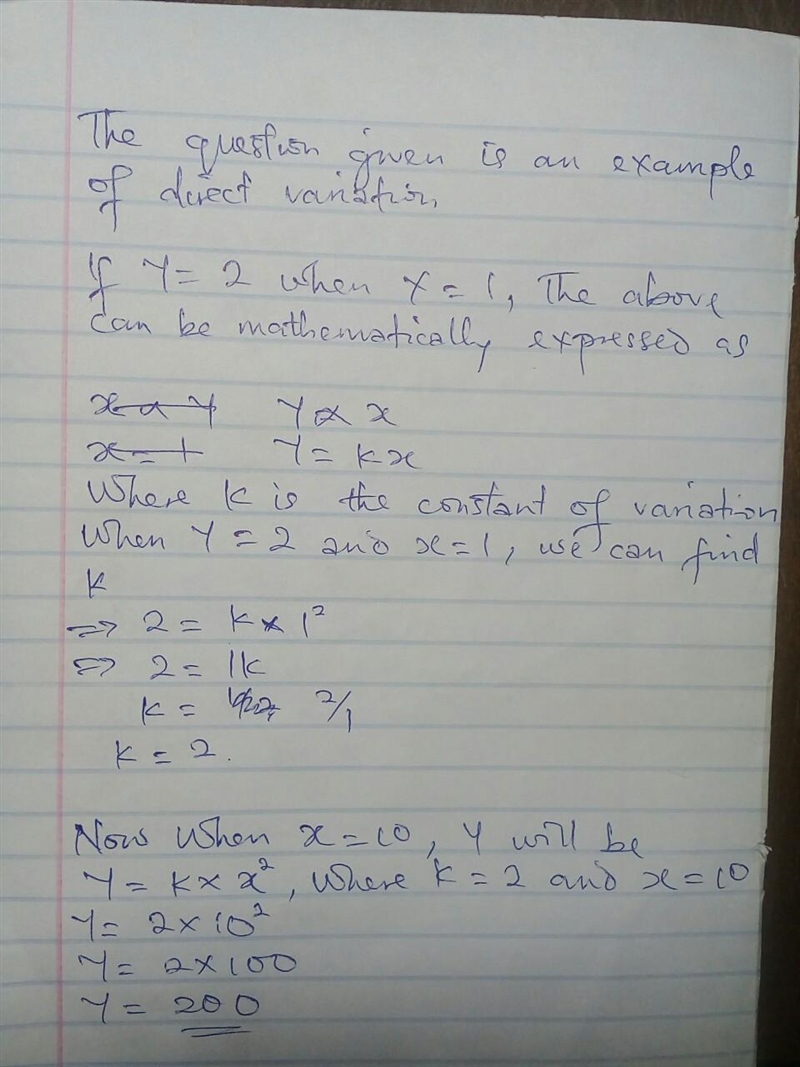 The question given is an example
of direct variation.
If Y = 2 when X = 1, The above
can be mathematically expressed as
x α Y Y α x
x = 1 Y = kx
Where k is the constant of variation
When Y = 2 and x = 1, we can find
k
⇒ 2 = k × 1²
⇒ 2 = 1k
k = 2/1
k = 2.
Now When x = 10, Y will be
Y = k × x², Where k = 2 and x = 10
Y = 2 × 10²
Y = 2 × 100
Y = 200